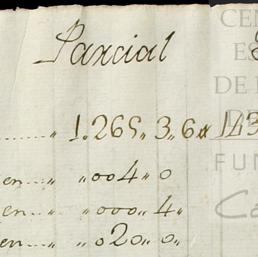 Parcial
1.265,, 3,, 6 143
en ,, 004,, 0
en ,, 000,, 4,,
en ,, 020,, 0,,
CEN
ES
DE
FUN
Ca